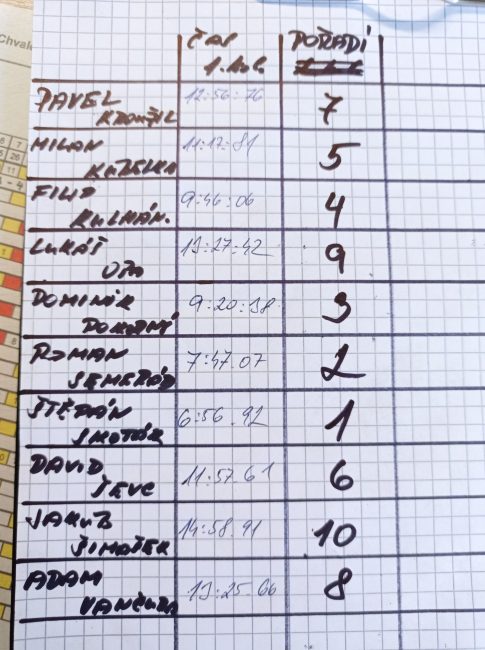 Chval
ČAS POŘADÍ
1. kol.
PAVEL 12:56:76 7
MILAN 11:17:81 5
KUŽELKA
FILIP 9:46:06 4
KULHÁN.
LUKÁŠ 13:27:42 9
OTA
DOMINIK 9:20:38 3
POKORNÝ
ROMAN 7:47.07 2
SEMERÁD
ŠTĚPÁN 6:56.92 1
DAVID 11:57.61 6
ŠEVC
JAKUB 14:58.91 10
ŠIMAČEK
ADAM 13:25.66 8
VANČURA